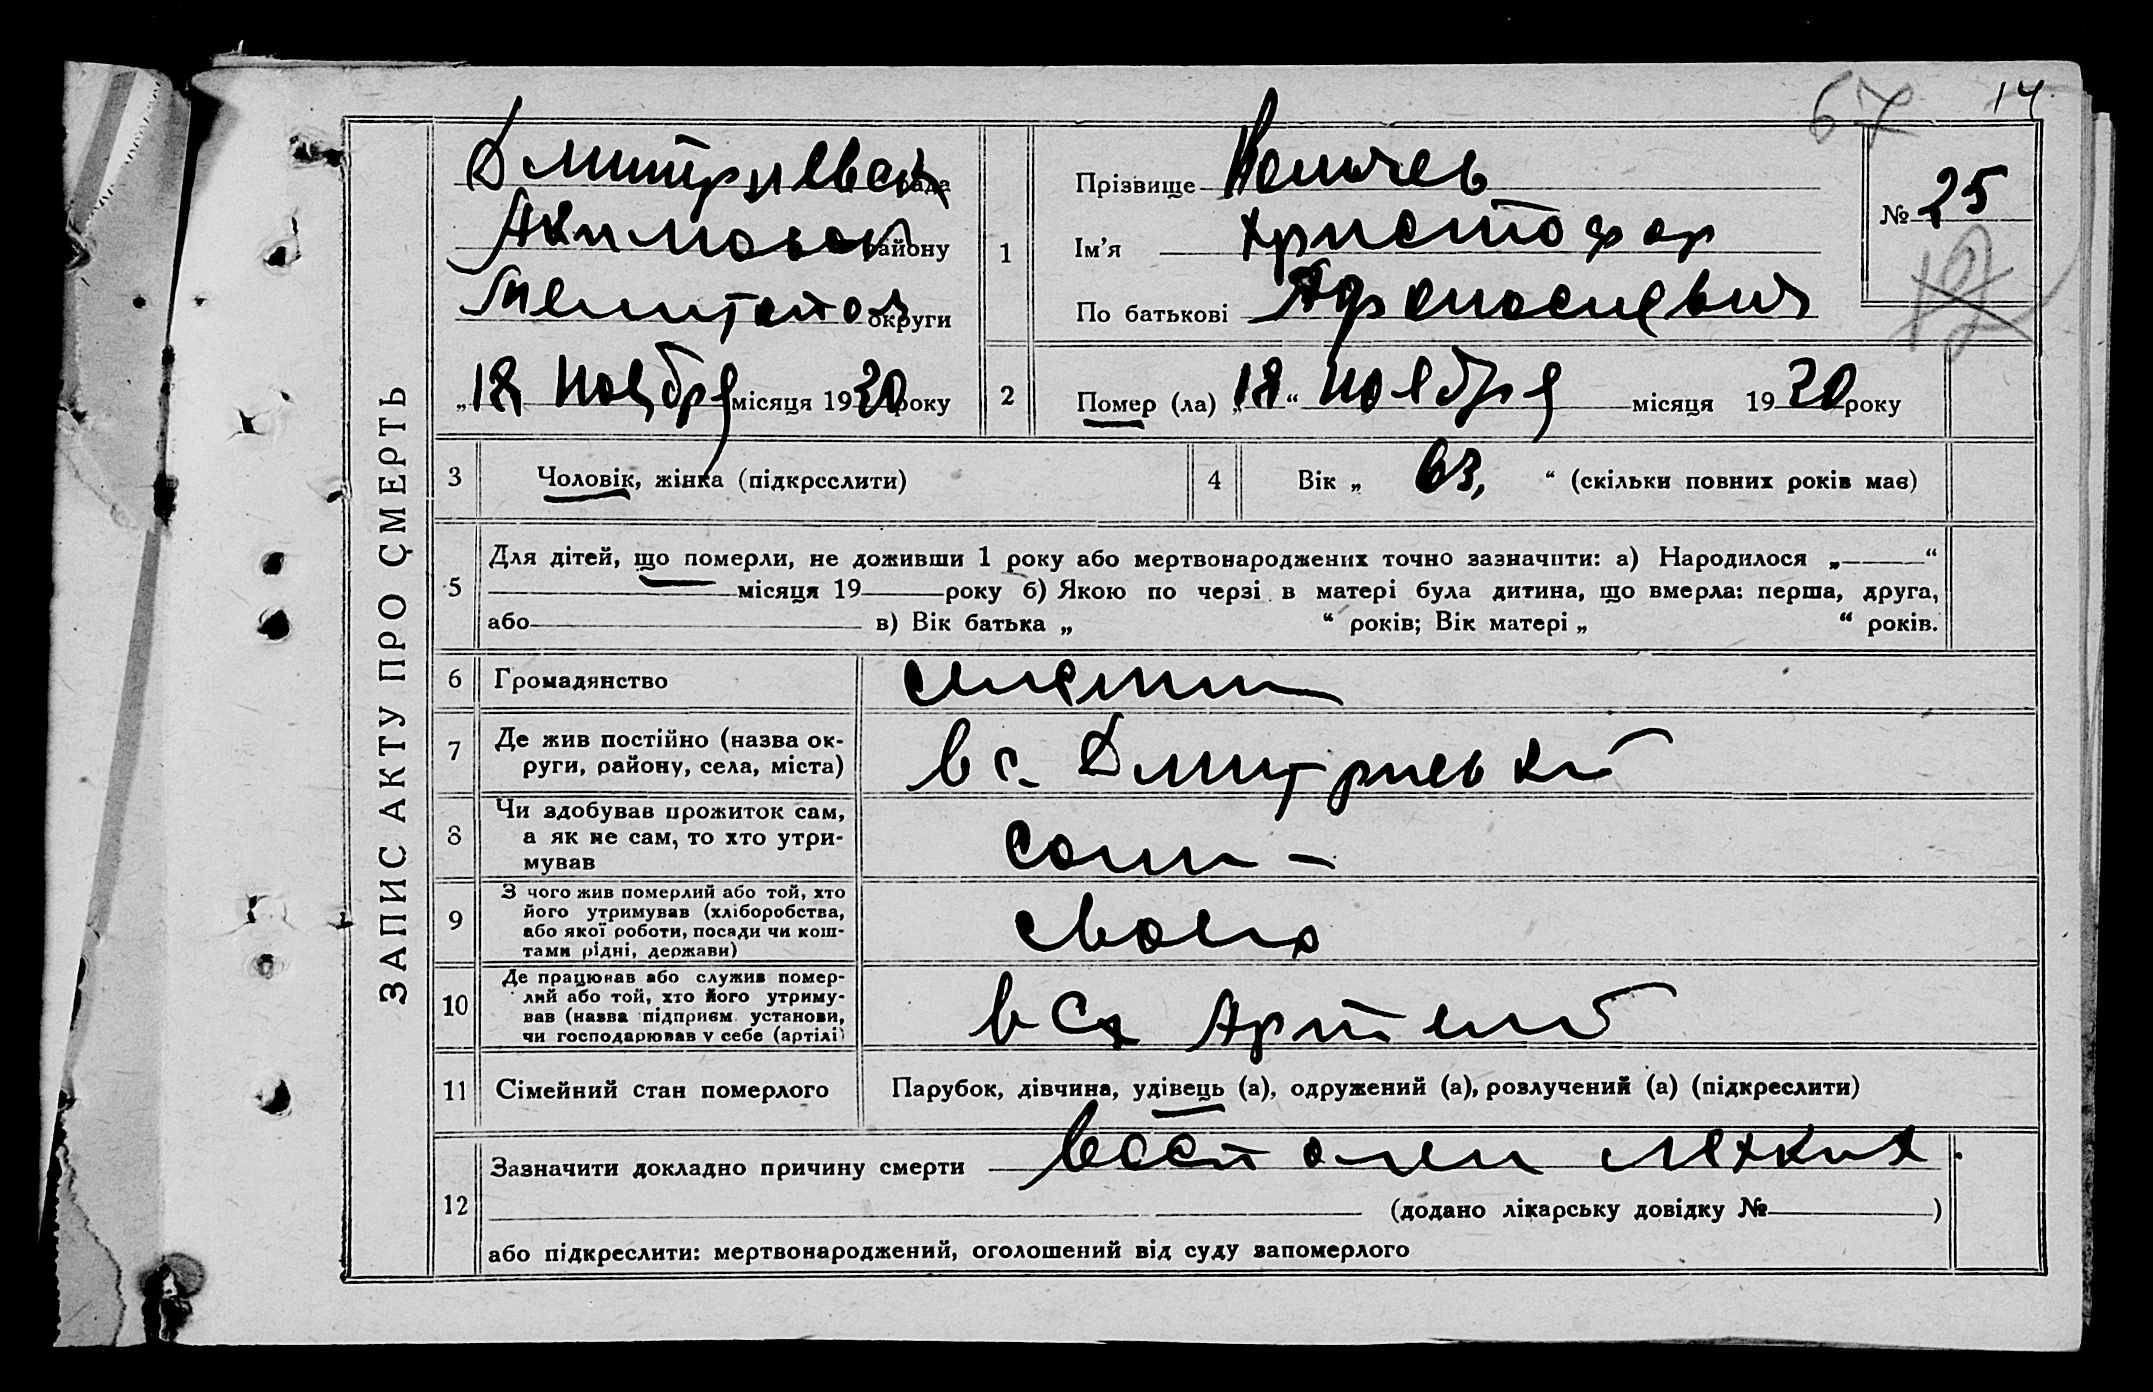 67 14
ЗАПИС АКТУ ПРО СМЕРТЬ
Дмитриевск рада
Акимовск району
Мелитопол округи
„18 Ноября місяця 1930 року
1
Прізвище
Ім’я Христофор
По батькові Афанасиевич
№ 25
2 Помер (ла) „18“ Ноября місяця 1930 року
3 Чоловік, жінка (підкреслити)
4 Вік „ 63, “ (скільки повних років має)
5 Для дітей, що померли, не доживши 1 року або мертвонароджених точно зазначити: а) Народилося „ “
місяця 19 року б) Якою по черзі в матері була дитина, що вмерла: перша, друга,
або в) Вік батька „ “ років; Вік матері „ “ років.
6 Громадянство
7 Де жив постійно (назва ок-
руги, району, села, міста)
в с. Дмитриевкй
8 Чи здобував прожиток сам,
а як не сам, то хто утри-
мував
сам –
9 З чого жив померлий або той, хто
його утримував (хліборобства,
або якої роботи, посади чи кош-
тами рідні, держави)
10 Де працював або служив помер-
лий або той, хто його утриму-
вав (назва підприєм. установи,
чи господарював у себе (артілі)
в Сх Артели
11 Сімейний стан померлого
Парубок, дівчина, удівець (а), одружений (а), розлучений (а) (підкреслити)
12 Зазначити докладно причину смерти легких
(додано лікарську довідку № )
або підкреслити: мертвонароджений, оголошений від суду запомерлого